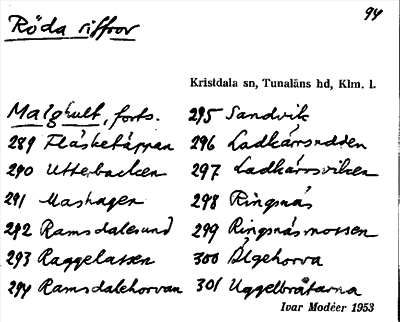 94
Röda siffror
Kristdala sn, Tunaläns hd, Klm. l.
Malghult, forts.
289 Fläsketäppan
290 Utterbacken
291 Mashagen
292 Ramsdalesund
293 Raggelassen
294 Ramsdalehorvan
295 Sandvik
296 Ladkärrsudden
297 Ladkärrsviken
298 Ringsnäs
299 Ringsnäsmossen
300 Älgehorva
301 Uggelbråtarna
Ivar Modéer 1953